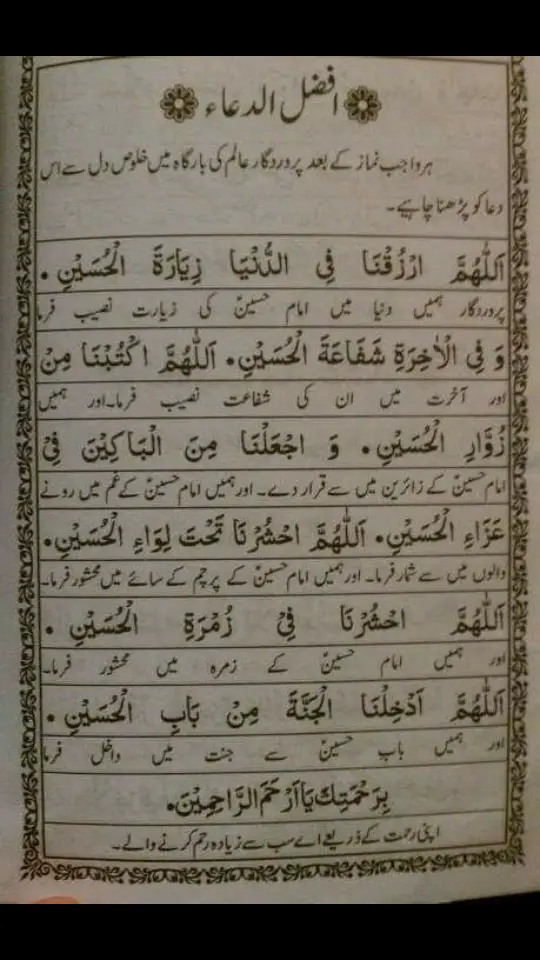 افضل الدعاء
ہر واجب نماز کے بعد پروردگار عالم کی بارگاہ میں خلوص دل سے اس
دعا کو پڑھنا چاہیے۔
اَللّٰهُمَّ ارْزُقْنَا فِي الدُّنْيَا زِيَارَةَ الْحُسَيْنِ۔
پروردگار ہمیں دنیا میں امام حسینؑ کی زیارت نصیب فرما
وَ فِي الْاٰخِرَةِ شَفَاعَةَ الْحُسَيْنِ۔ اَللّٰهُمَّ اكْتُبْنَا مِنْ
اور آخرت میں ان کی شفاعت نصیب فرما۔اور ہمیں
زُوَّارِ الْحُسَيْنِ۔ وَ اجْعَلْنَا مِنَ الْبَاكِيْنَ فِيْ
امام حسینؑ کے زائرین میں سے قرار دے۔ اور ہمیں امام حسینؑ کے غم میں رونے
عَزَاءِ الْحُسَيْنِ۔ اَللّٰهُمَّ احْشُرْنَا تَحْتَ لِوَاءِ الْحُسَيْنِ۔
والوں میں سے شمار فرما۔ اور ہمیں امام حسینؑ کے پرچم کے سائے میں محشور فرما۔
اَللّٰهُمَّ احْشُرْنَا فِيْ زُمْرَةِ الْحُسَيْنِ۔
اور ہمیں امام حسینؑ کے زمرہ میں محشور فرما۔
اَللّٰهُمَّ اَدْخِلْنَا الْجَنَّةَ مِنْ بَابِ الْحُسَيْنِ۔
اور ہمیں باب حسینؑ سے جنت میں داخل فرما
بِرَحْمَتِكَ يَا اَرْحَمَ الرَّاحِمِيْنَ۔
اپنی رحمت کے ذریعے اے سب سے زیادہ رحم کرنے والے۔